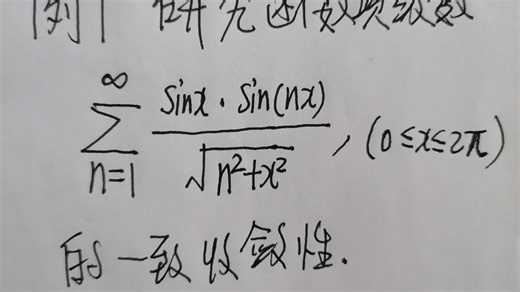 例1 研究函数项级数
∞
∑ sinx · sin(nx) / √n²+x² , (0≤x≤2π)
n=1
的一致收敛性.